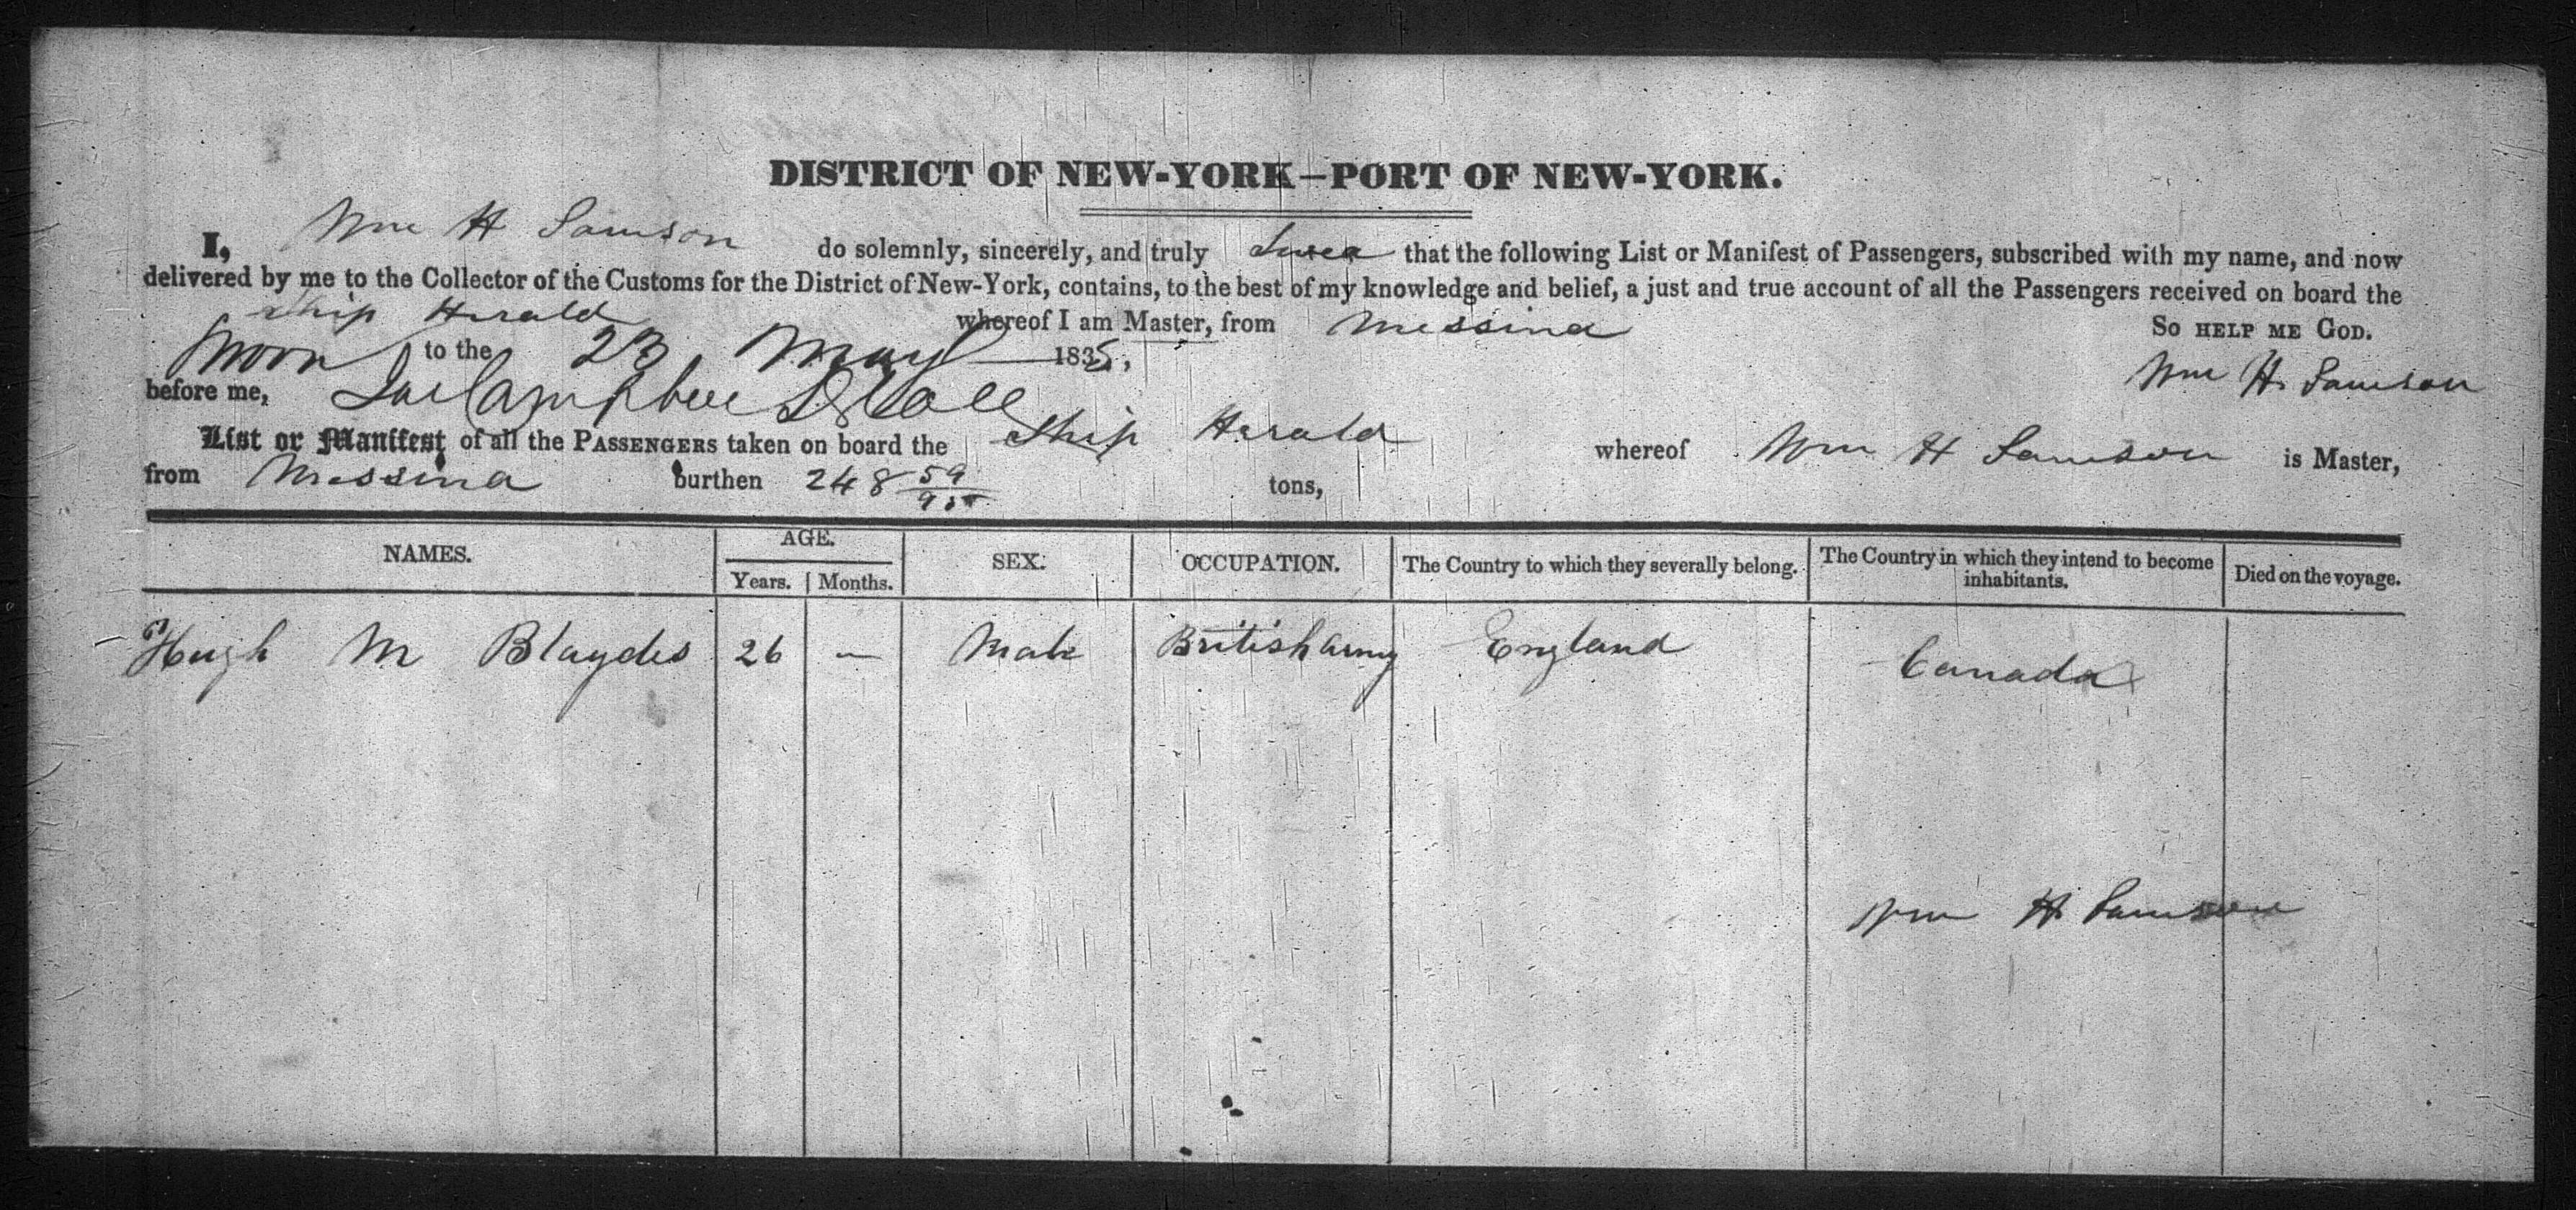 DISTRICT OF NEW-YORK—PORT OF NEW-YORK.
I, Wm H Samson do solemnly, sincerely, and truly that the following List or Manifest of Passengers, subscribed with my name, and now
delivered by me to the Collector of the Customs for the District of New-York, contains, to the best of my knowledge and belief, a just and true account of all the Passengers received on board the
Ship Herald whereof I am Master, from Messina So HELP ME GOD.
to the 23 May 1835,
Wm H. Samson
before me,
List or Manifest of all the PASSENGERS taken on board the Ship Herald whereof Wm H Samson is Master,
from Messina burthen 248 59/95 tons,
NAMES. AGE. SEX. OCCUPATION. The Country to which they severally belong. The Country in which they intend to become inhabitants. Died on the voyage.
Years. Months.
Hugh M Blaydes 26 — Male British army England Canada
Wm H. Samson